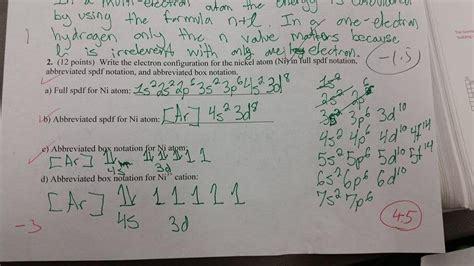 In a multi-electron atom the energy is calculated
by using the formula n+l. In a one-electron
hydrogen only the n value matters because
l is irrelevent with only one electron.
(-1.5)
2. (12 points) Write the electron configuration for the nickel atom (Ni) in full spdf notation,
abbreviated spdf notation, and abbreviated box notation.
a) Full spdf for Ni atom: 1s²2s²2p⁶3s²3p⁶4s²3d⁸
b) Abbreviated spdf for Ni atom: [Ar] 4s²3d⁸
c) Abbreviated box notation for Ni atom:
[Ar] ⥮ ⥮ ⥮ ⥮ 1 1
4s 3d
d) Abbreviated box notation for Ni cation:
[Ar] ⥮ 1 1 1 1 1
4s 3d
-3
1s²
2s² 2p⁶
3s² 3p⁶ 3d¹⁰
4s² 4p⁶ 4d¹⁰ 4f¹⁴
5s² 5p⁶ 5d¹⁰ 5f¹⁴
6s² 6p⁶ 6d¹⁰
7s² 7p⁶
4.5